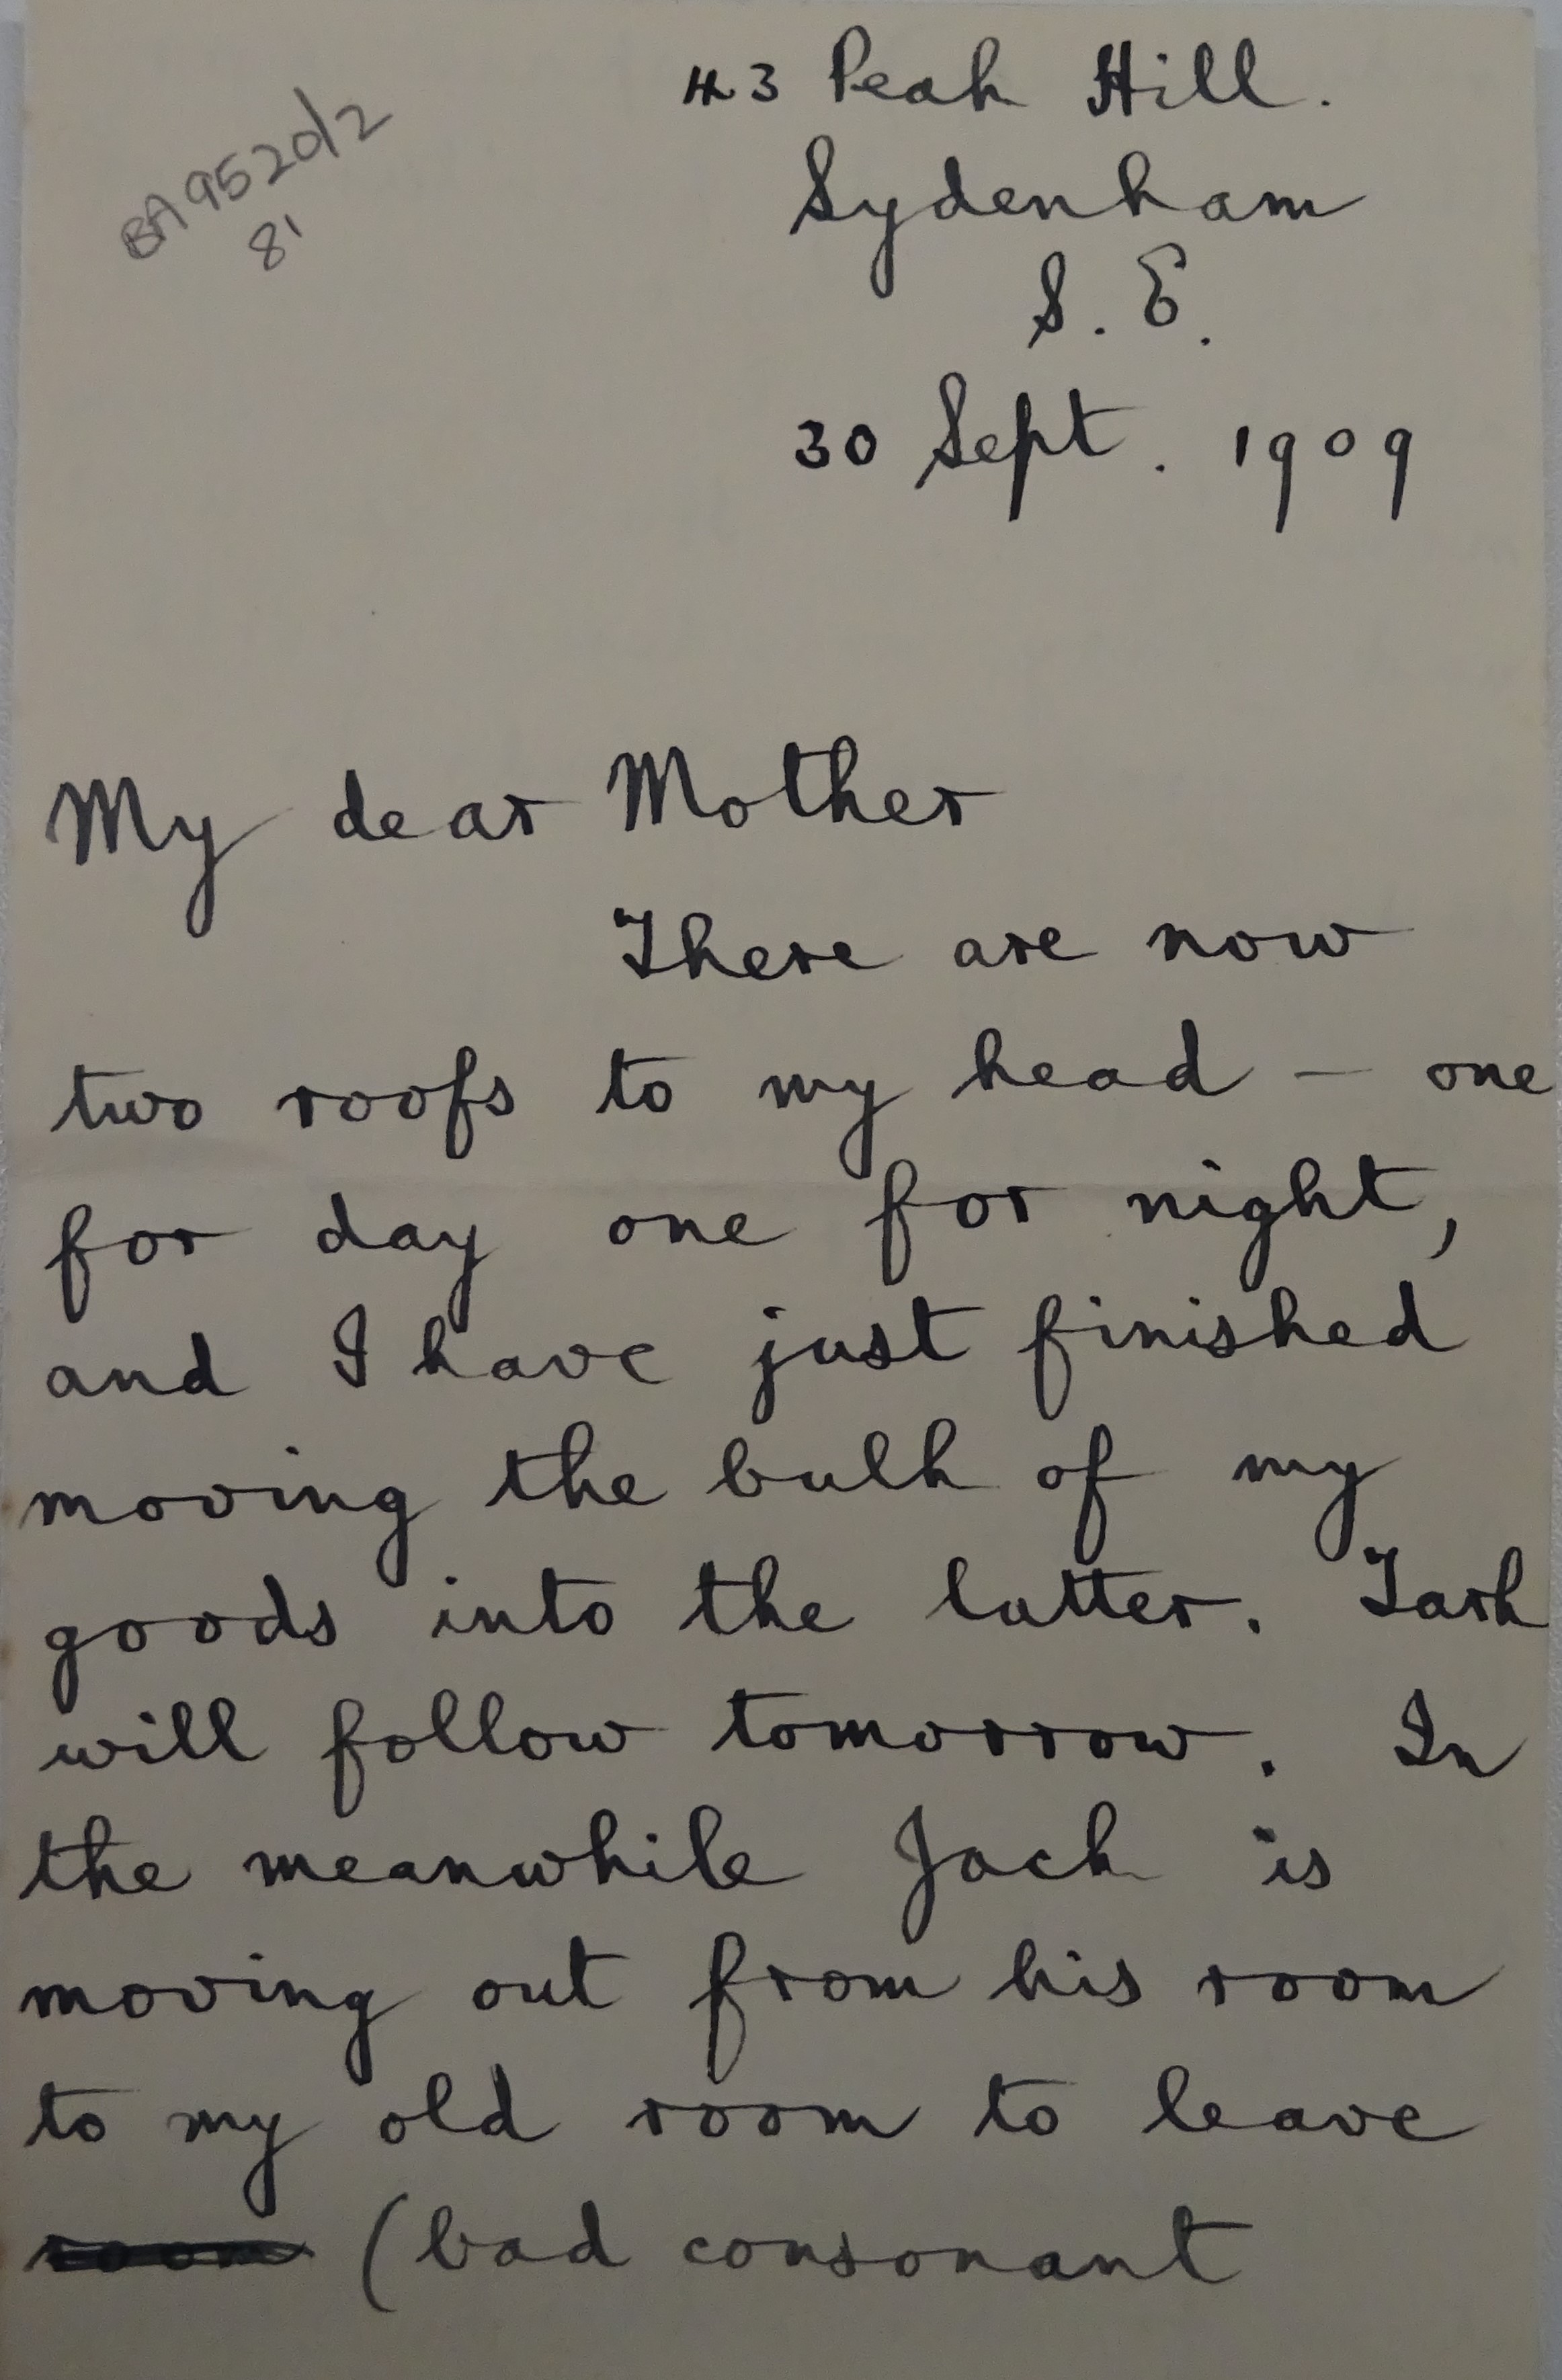 BA 9520/2
81
43 Peak Hill.
Sydenham
S. E.
30 Sept. 1909
My dear Mother
There are now
two roofs to my head — one
for day one for night,
and I have just finished
moving the bulk of my
goods into the latter. Tark
will follow tomorrow. In
the meanwhile Jack is
moving out from his room
to my old room to leave
room (bad consonant